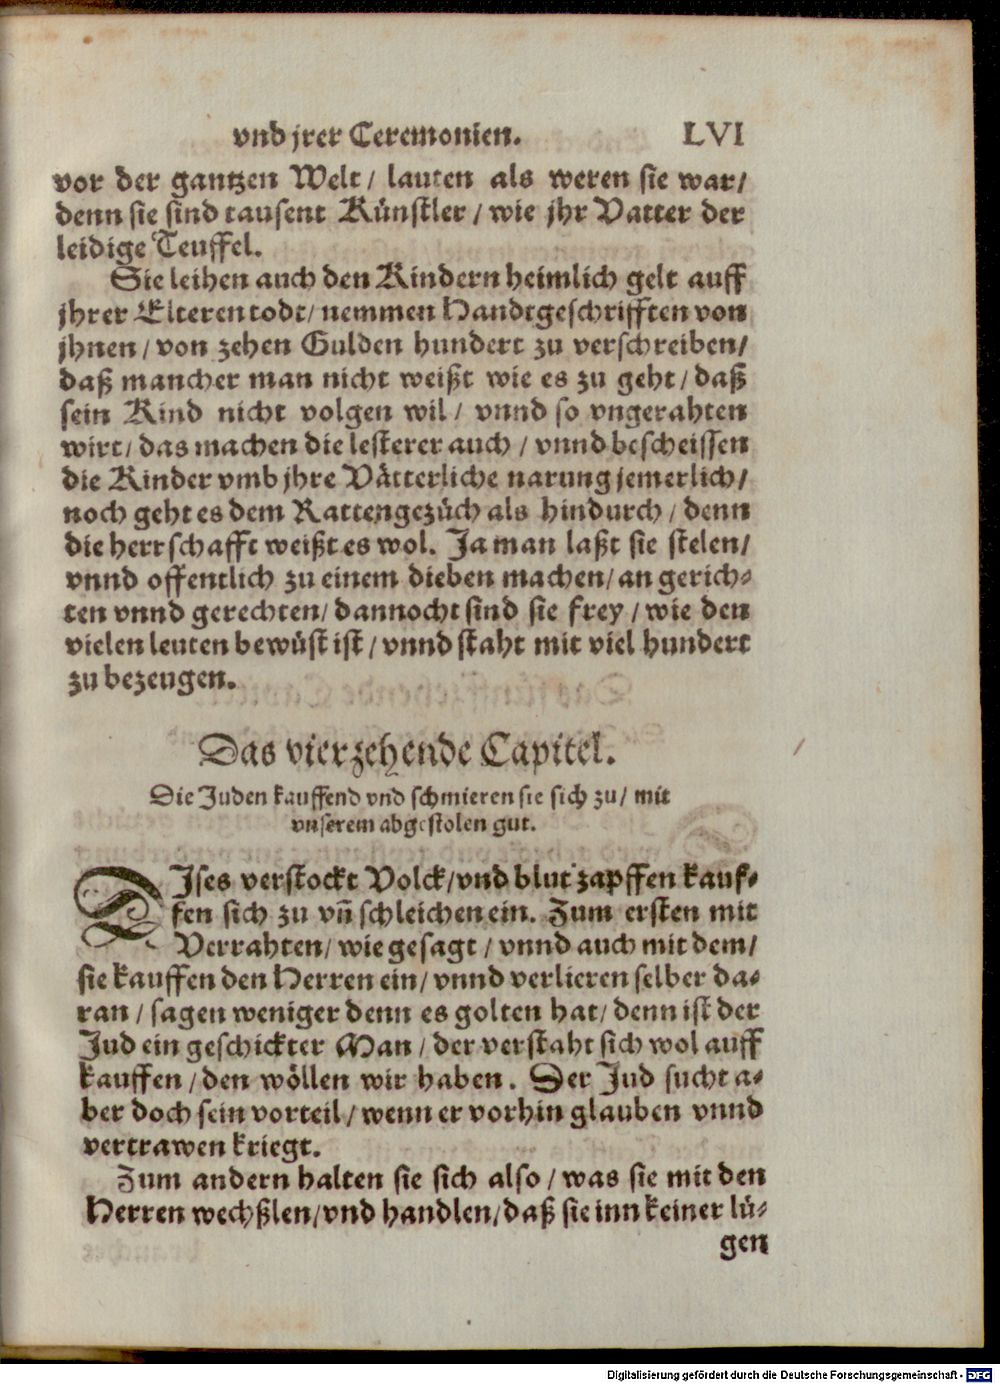 vnd jrer Ceremonien. LVI
vor der gantzen Welt / lauten als weren sie war/
denn sie sind tausent Künstler / wie jhr Vatter der
leidige Teuffel.
Sie leihen auch den Kindern heimlich gelt auff
jhrer Elteren todt / nemmen Handtgeschrifften von
jhnen / von zehen Gulden hundert zu verschreiben/
daß mancher man nicht weißt wie es zu geht / daß
sein Kind nicht volgen wil / vnnd so vngerahten
wirt / das machen die lesterer auch / vnnd bescheissen
die Kinder vmb jhre Vätterliche narung jemerlich/
noch geht es dem Rattengezüch als hindurch / denn
die herrschafft weißt es wol. Ja man laßt sie stelen/
vnnd offentlich zu einem dieben machen / an gerich⸗
ten vnnd gerechten / dannocht sind sie frey / wie den
vielen leuten bewüst ist / vnnd staht mit viel hundert
zu bezeugen.
Das vierzehende Capitel.
Die Juden kauffend vnd schmieren sie sich zu / mit
vnserem abgestolen gut.
DJses verstockt Volck / vnd blut zapffen kauf⸗
fen sich zu vñ schleichen ein. Zum ersten mit
Verrahten / wie gesagt / vnnd auch mit dem/
sie kauffen den Herren ein / vnnd verlieren selber da⸗
ran / sagen weniger denn es golten hat / denn ist der
Jud ein geschickter Man / der verstaht sich wol auff
kauffen / den wöllen wir haben. Der Jud sucht a⸗
ber doch sein vorteil / wenn er vorhin glauben vnnd
vertrawen kriegt.
Zum andern halten sie sich also / was sie mit den
Herren wechßlen / vnd handlen / daß sie inn keiner lü⸗
gen
Digitalisierung gefördert durch die Deutsche Forschungsgemeinschaft - DFG